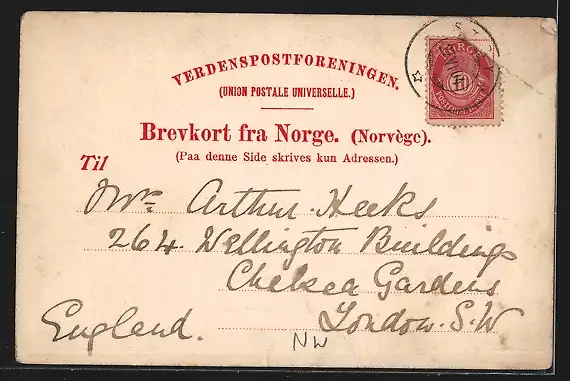 VERDENSPOSTFORENINGEN.
(UNION POSTALE UNIVERSELLE.)
NORGE
10
Brevkort fra Norge. (Norvège).
(Paa denne Side skrives kun Adressen.)
Til
Mr. Arthur Heeks
264. Wellington Buildings
Chelsea Gardens
London. S.W
England.
NW